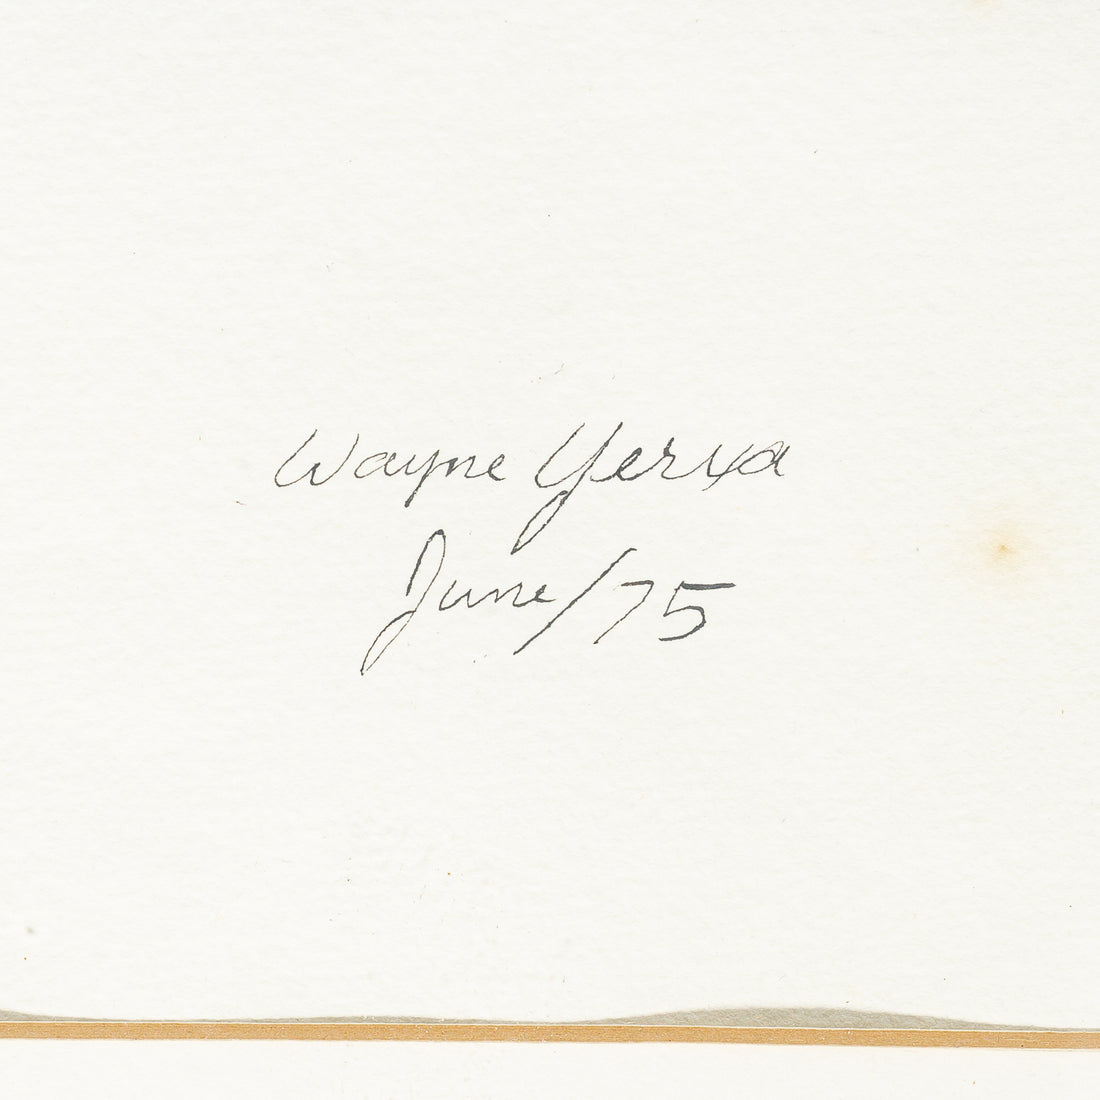 Wayne Yerxa
June/75